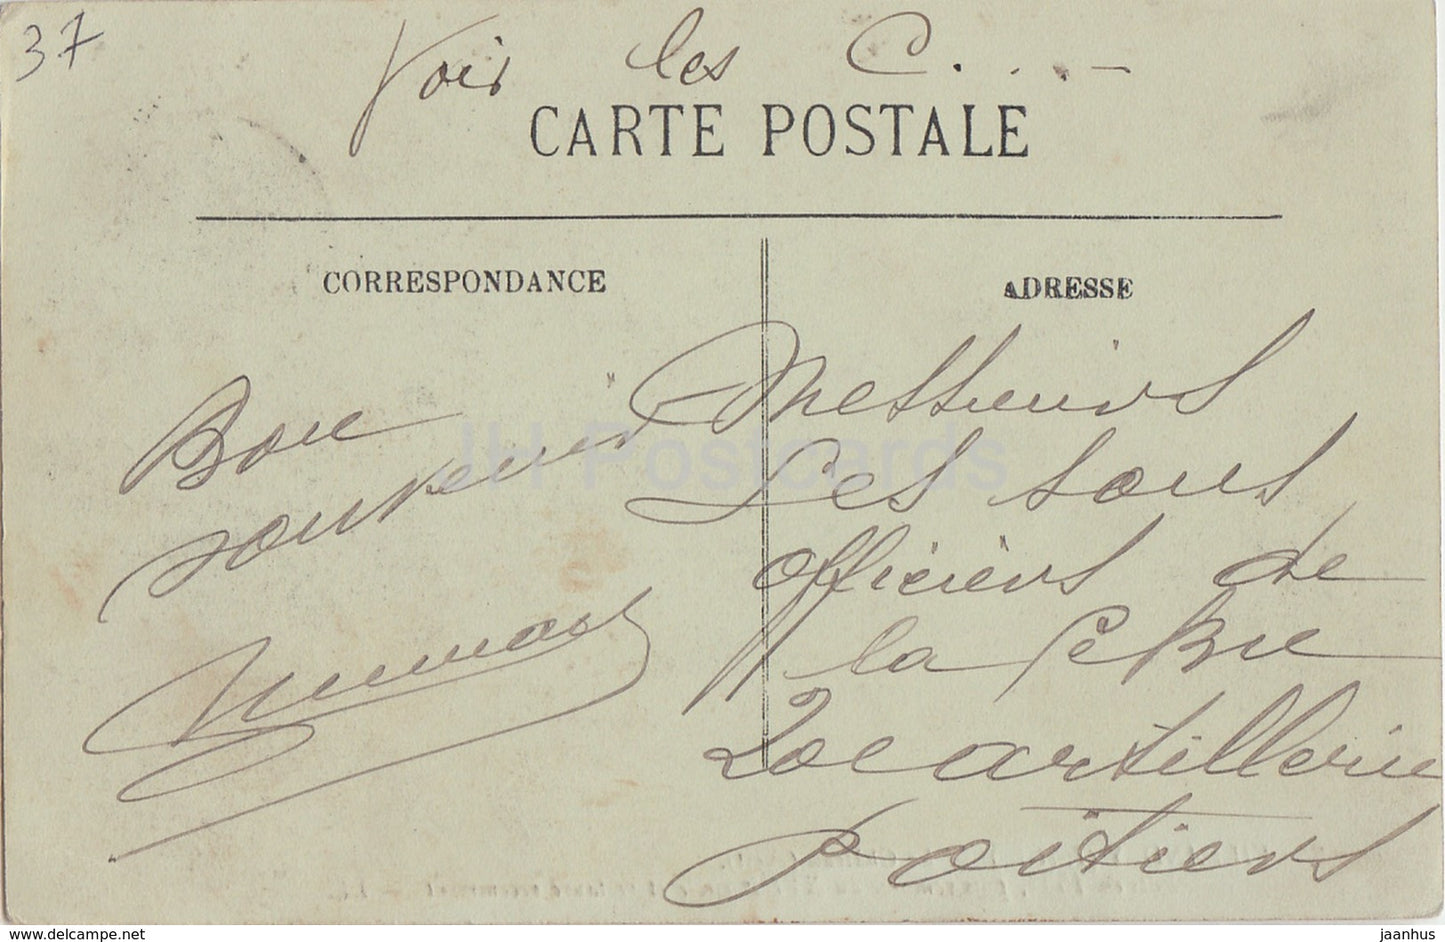 37
Voir les C. . . . -
CARTE POSTALE
CORRESPONDANCE
ADRESSE
Bon
souvenir
Messieurs
Les sous
officiers de
la Bie
20e artillerie
Poitiers
JH Postcards
www.delcampe.net
jaanhus